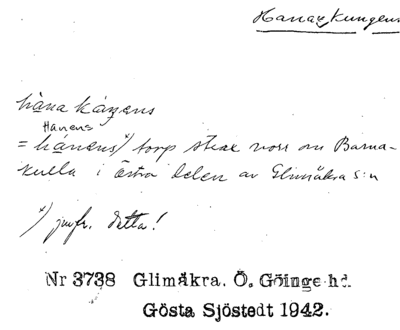 Hanarkungens
håna kåŋens
Hånens
= hånens x) torp strax norr om Barna-
kulla i östra delen av Glimåkra s:n
x) jmfr. detta!
Nr 3738 Glimåkra. Ö. Göinge hd.
Gösta Sjöstedt 1942.